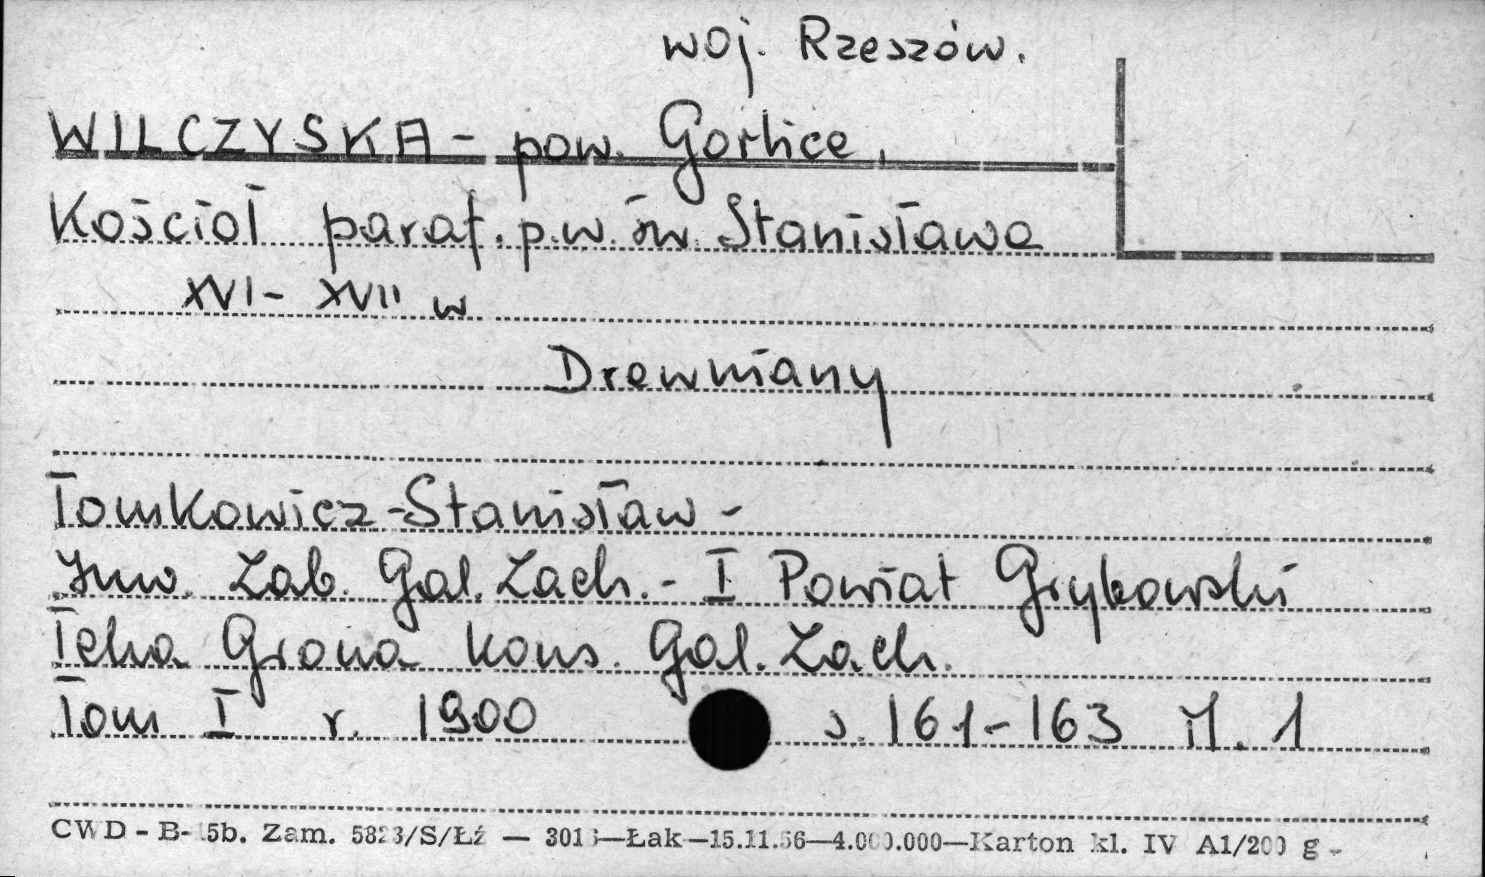 woj. Rzeszów.
WILCZYSKA - pow. Gorlice,
Kościół paraf. p.w. św. Stanisława
XVI - XVII w
Drewniany
Tomkowicz - Stanisław -
Inw. Zab. Gal. Zach. - I Powiat Grybowski
Teka Grona Kons. Gal. Zach.
Tom I r. 1900 s. 161-163 il. 1
CWD - B- 5b. Zam. 5823/S/Łź — 3013—Łak—15.11.56—4.000.000—Karton kl. IV A1/200 g